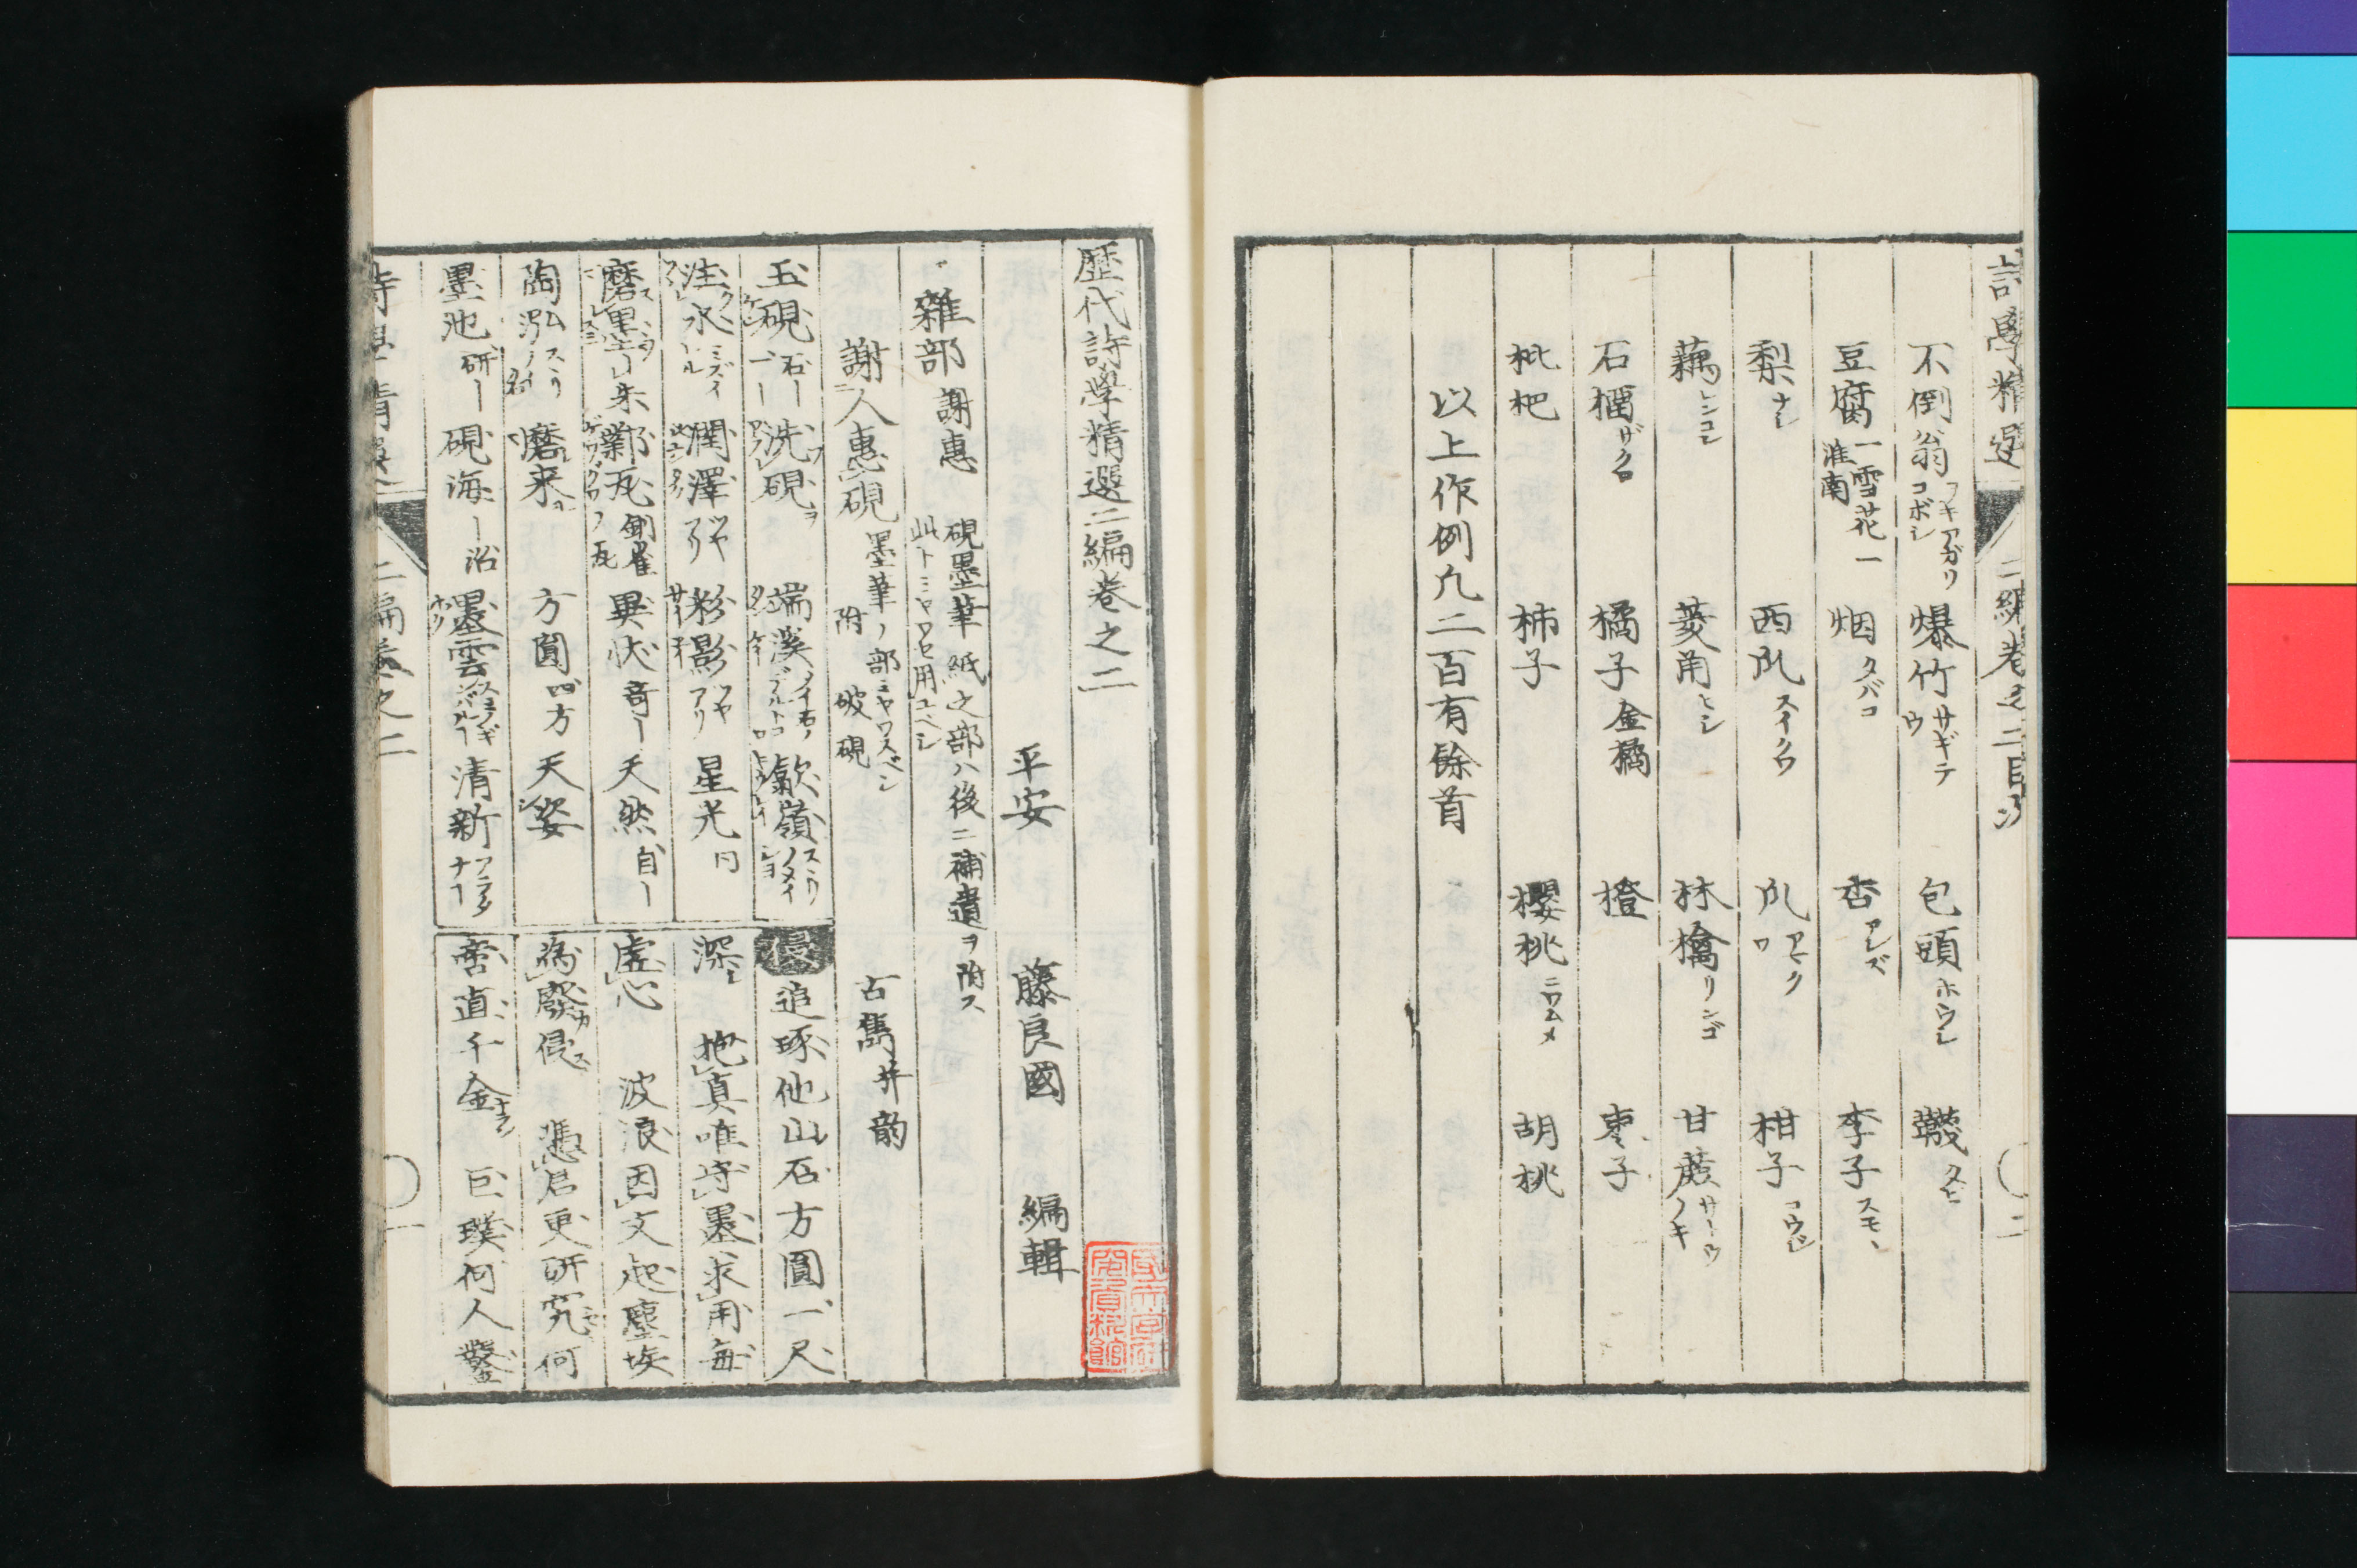 詩學精選 二編卷之二目次
不倒翁 ヲキアガリコボシ 爆竹 サギテウ 包頭 ホウシ 韈 タビ
豆腐 一雪花一淮南 烟 タバコ 杏 アンズ 李子 スモヽ
梨 ナシ 西瓜 スイクワ 瓜 柑子 コウジ
藕 レンコン 菱角 ヒシ 林檎 リンゴ 甘蔗 サトウノキ
石榴 ザクロ 橘子 金橘 橙 棗子
枇杷 柿子 櫻桃 ニワムメ 胡桃
以上作例凡二百有餘首
歷代詩學精選二編卷之二
平安 藤良國 編輯
雜部 謝惠 硯墨筆紙之部ハ後ニ補遺ヲ附ス 此トミヤワセ用ユベシ
謝人惠硯 墨筆ノ部ミヤワスベシ 附 破硯 古雋并韵
玉硯 石ー 洗硯ヲ 端溪 歙嶺
侵 追琢他山石方圓一尺
注水 潤澤 ツヤアリ 彩影 ツヤアリ 星光 円
深 抱真唯守墨求用每
磨墨 ー朱 鄴瓦 銅雀瓦 異狀 奇ー 天然 自ー
虛心 波浪因文起塵埃
陶泓 スヾリノ名 磨来 方圓 四方 天姿
為廢侵 憑君更研究何
墨池 研ー 硯海 ー沼 墨雲 清新 アラタナー
啻直千金 巨璞何人鑿
詩學精選 二編卷之二 一